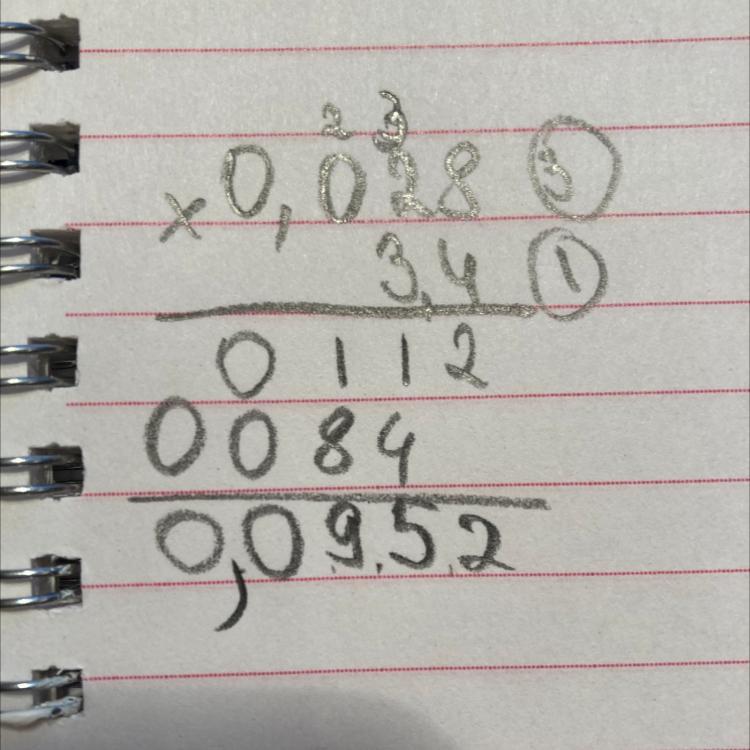 2 3
× 0,028 3
3,4 1
0112
0084
0,0952